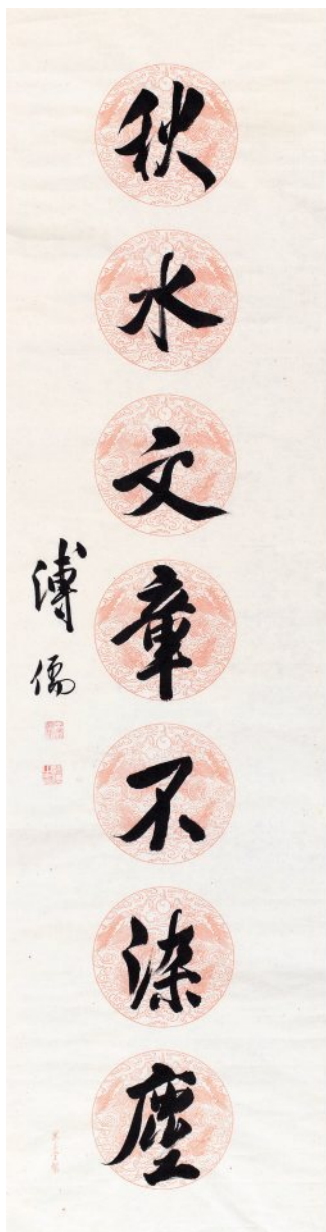 秋水文章不染塵
溥儒